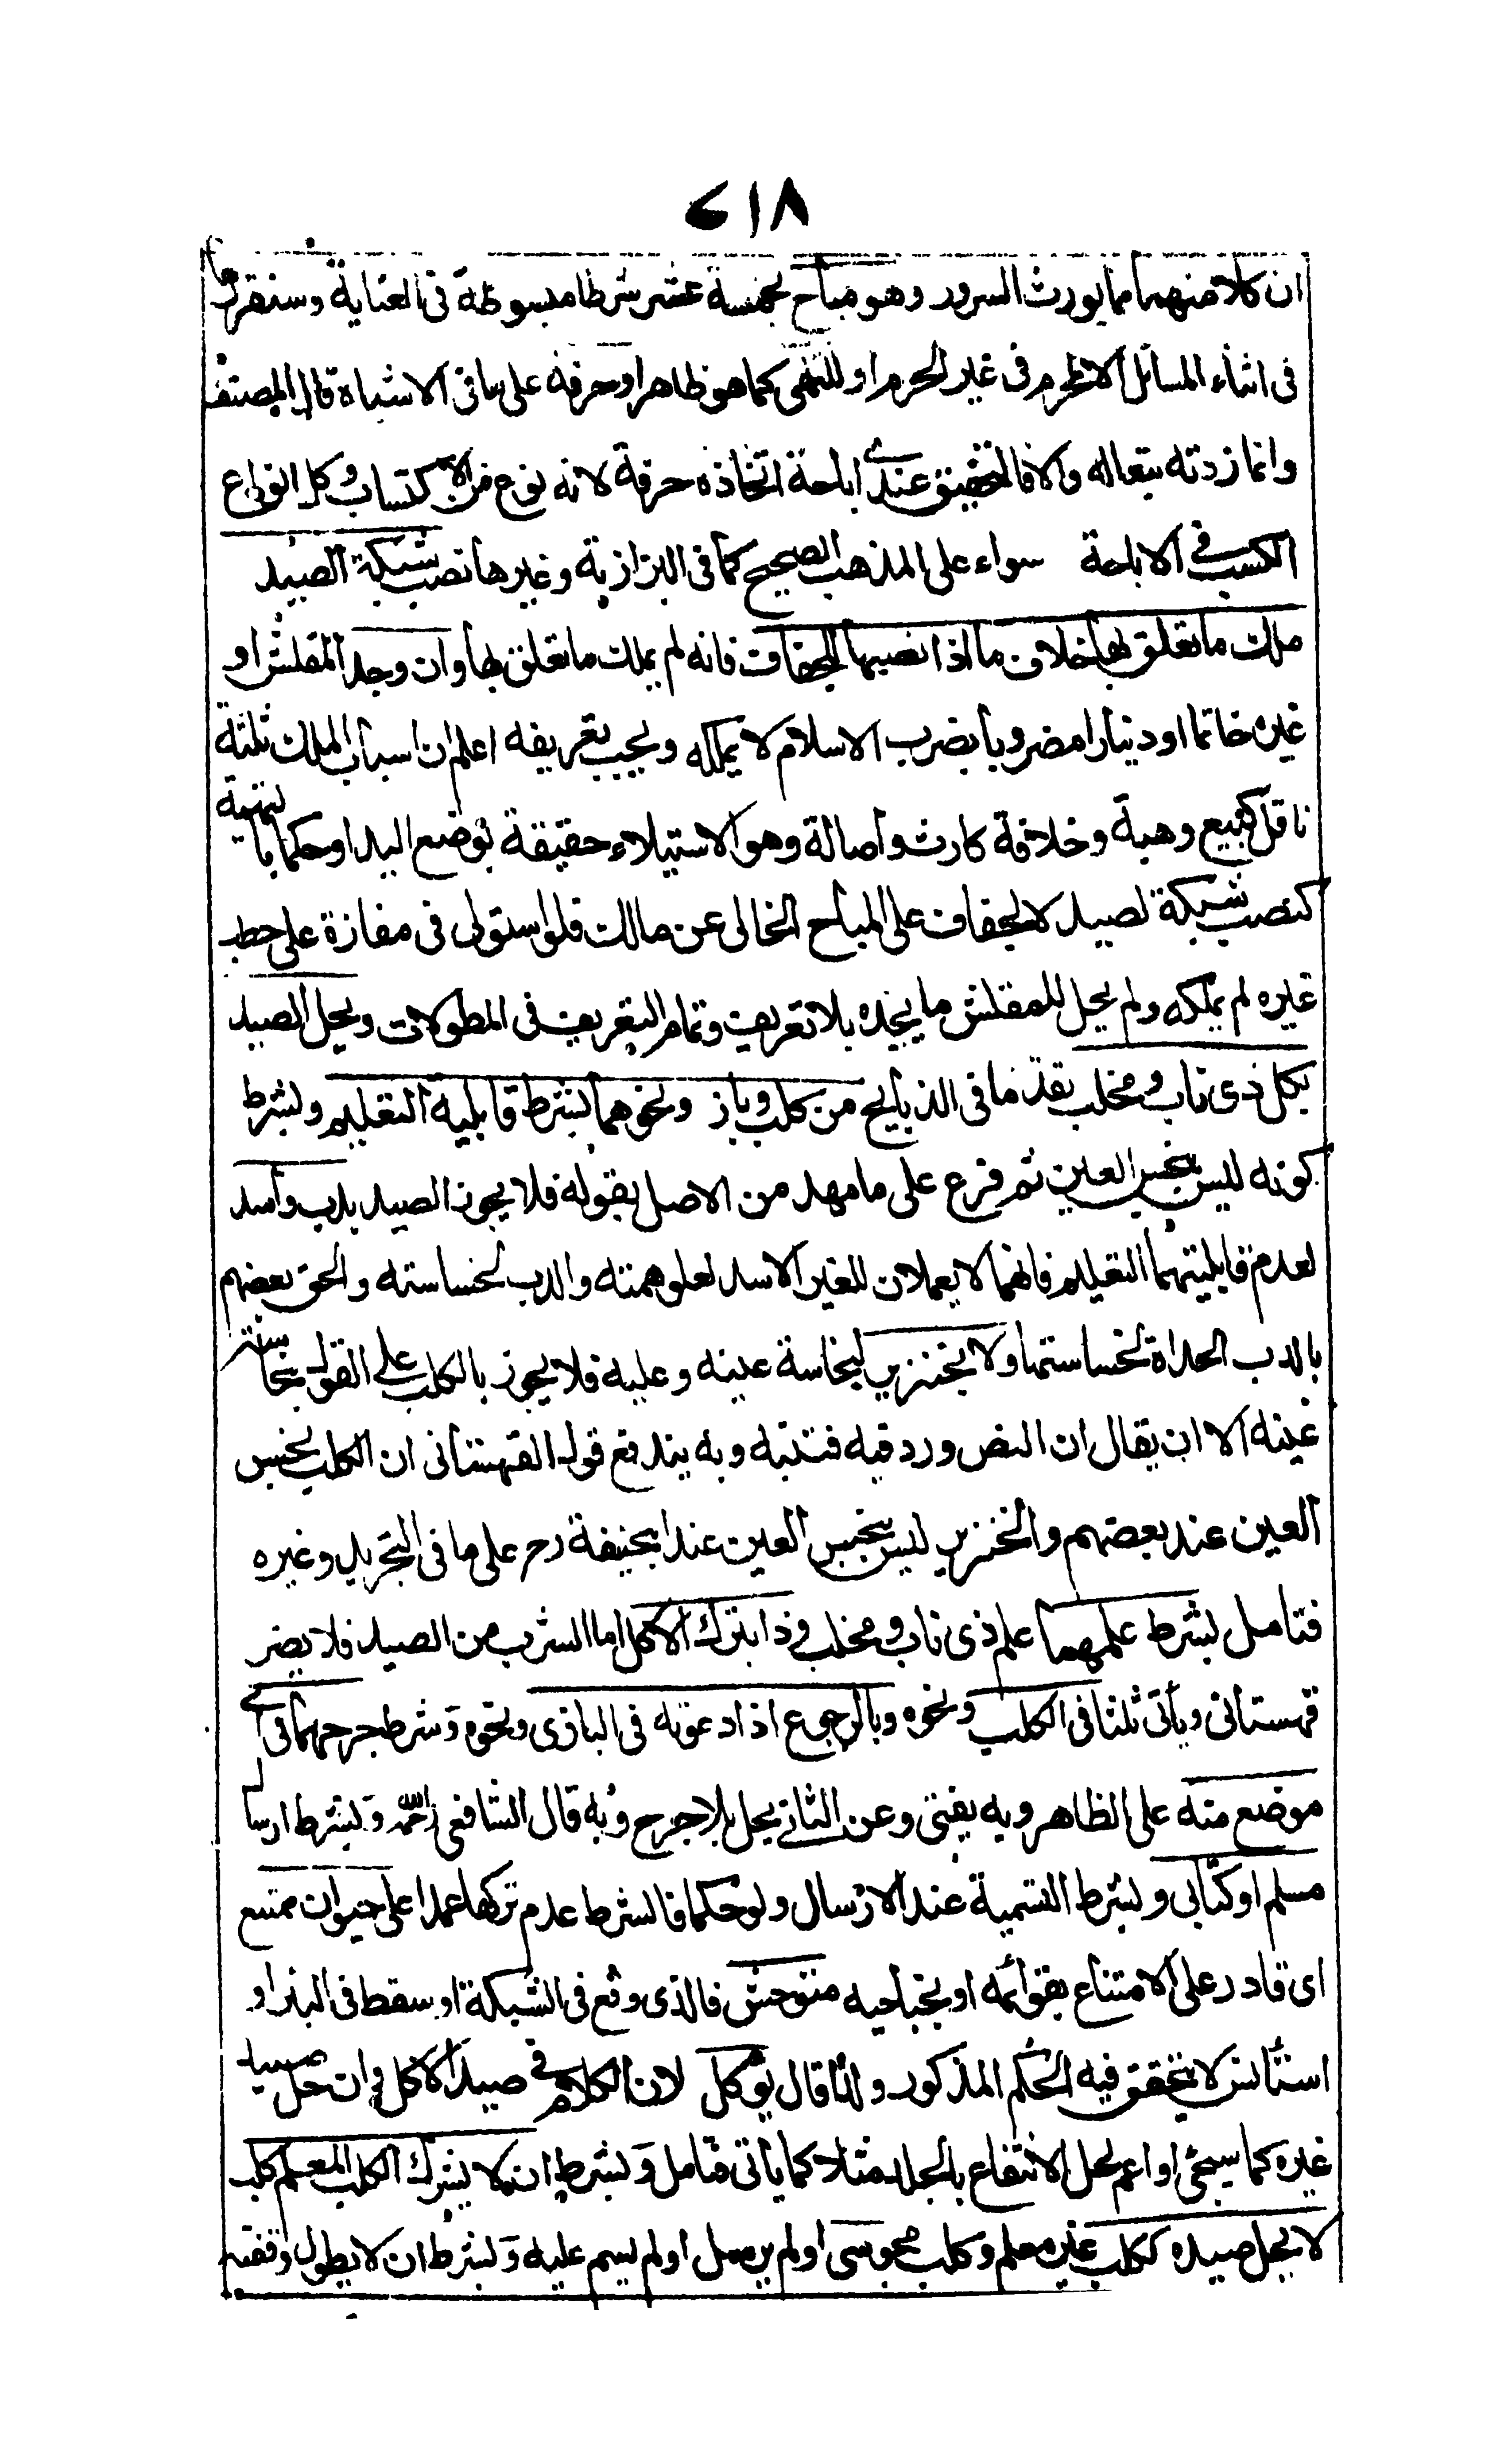 ٦١٨
ان كلا منهما مما يورث السرور وهو مباح بخمسة عشر شرطا مبسوطة في العناية وسنقررها
في اثناء المسائل الا لمحرم في غير الحرم او للتلهي كما هو ظاهر او حرفة على ما في الاشباه قال المصنف
وانما زدته تبعا له والا فالتحقيق عندي اباحة اتخاذه حرفة لانه نوع من الاكتساب وكل انواع
الكسب في الاباحة سواء على المذهب الصحيح كما في البزازية وغيرها نصب شبكة للصيد
ملك ما تعلق بها بخلاف ما اذا نصبها للجفاف فانه لم يملك ما تعلق بها وان وجد المقلش او
غيره خاتما او دينارا مضروبا بضرب الاسلام لا يملكه ويجب تعريفه اعلم ان اسباب الملك ثلثة
ناقل كبيع وهبة وخلافة كارث واصالة وهو الاستيلاء حقيقة بوضع اليد او حكما بالتهيئة
كنصب شبكة لصيد لا لجفاف على المباح الخالي عن مالك فلو استولى في مفازة على حطب
غيره لم يملكه ولم يحل للمقلش ما يجده بلا تعريف وتمام التعريف في المطولات ويحل الصيد
بكل ذي ناب ومخلب تقدما في الذبايح من كلب وباز ونحوهما بشرط قابلية التعليم وبشرط
كونه ليس بنجس العين ثم فرع على ما مهد من الاصل بقوله فلا يجوز الصيد بدب واسد
لعدم قابليتهما التعليم فانهما لا يعملان للغير الاسد لعلو همته والدب لخساسته والحق بعضهم
بالدب الحدأة لخساستها ولا بخنزير لنجاسة عينه وعليه فلا يجوز بالكلب على القول بنجاسة
عينه الا ان يقال ان النص ورد فيه فتنبه وبه يندفع قول القهستاني ان الكلب نجس
العين عند بعضهم والخنزير ليس بنجس العين عند ابيحنيفة رح على ما في التجريد وغيره
فتامل بشرط علمهما علم ذي ناب ومخلب وذا بترك الاكل اما الشرب من الصيد فلا يضر
قهستاني ويأتي ثلثا في الكلب ونحوه وبالرجوع اذا دعوته في البازي ونحوه وبشرط جرحهما في اي
موضع منه على الظاهر وبه يفتى وعن الثاني يحل بلا جرح وبه قال الشافعي رحمه الله وبشرط ارسال
مسلم او كتابي وبشرط التسمية عند الارسال ولو حكما فالشرط عدم تركها عمدا على حيوان ممتنع
اي قادر على الامتناع بقوائمه او بجناحيه متوحش فالذي وقع في الشبكة او سقط في البئر او
استأنس لا يتحقق فيه الحكم المذكور ولذا قال يؤكل لان الكلام في صيد الاكل وان حل صيد
غيره كما سيجئ او اعم لحل الانتفاع بالجلد مثلا كما يأتي فتامل وبشرط ان لا يشرك الكلب المعلم كلب
لا يحل صيده ككلب غير معلم وكلب مجوسي او لم يرسل او لم يسم عليه وبشرط ان لا يطول وقفته